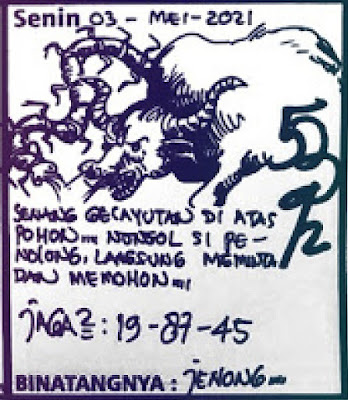 Senin 03 - MEI - 2021
SENANG GECAYUTAN DI ATAS
POHON... NONGOL SI PE-
NOLONG, LANGSUNG MEMINTA
DAN MEMOHON...
JAGA2 = : 19 - 87 - 45
BINATANGNYA : JENONG...